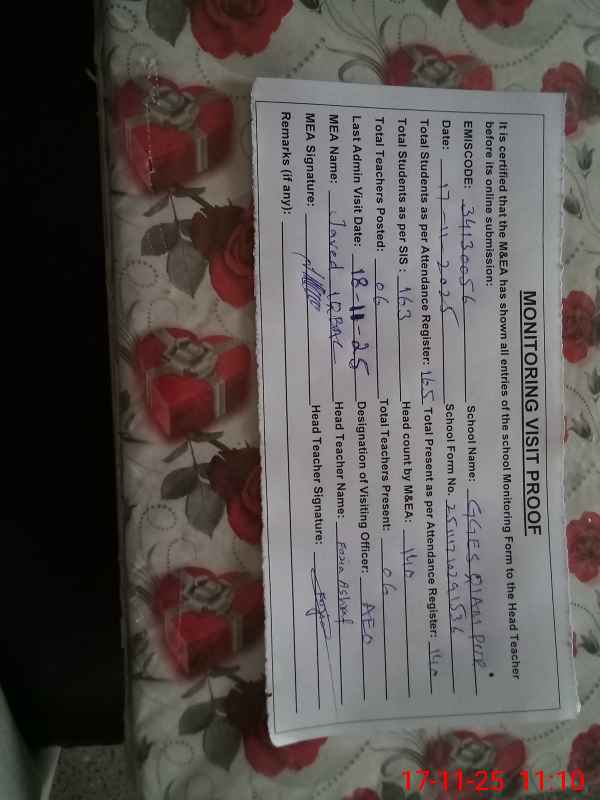 MONITORING VISIT PROOF
It is certified that the M&EA has shown all entries of the school Monitoring Form to the Head Teacher
before its online submission:
EMISCODE: 34130056 School Name: GGES
Date: 17-11-2025 School Form No.
Total Students as per Attendance Register: 165 Total Present as per Attendance Register: 140
Total Students as per SIS: 163 Head count by M&EA: 140
Total Teachers Posted: 06 Total Teachers Present: 06
Last Admin Visit Date: 18-11-25 Designation of Visiting Officer: AEO
MEA Name: Javed IQBAL Head Teacher Name: Fozia Ashraf
MEA Signature: Head Teacher Signature:
Remarks (if any):
17-11-25 11:10